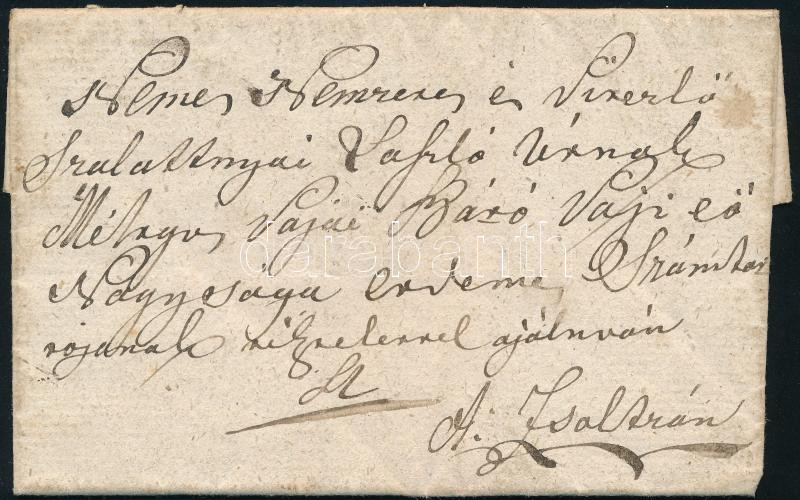 Nemes Nemzetes és Vitézlő
Szalattnyai László Úrnak
Méltgos Vajai Báró Vaji eő
Nagysága érdemes Számtar
tojanak tiszteletel ajálnván
A. Zsoltrán
darabanth